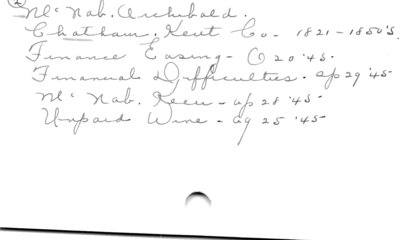 Mc Nab. Archibald.
Chatham, Kent Co - 1821-1850'S.
Finance Easing - O 20 '45.
Financial Difficulties. ap 29 '45
Mc Nab. - ap 28 '45
Unpaid Wine - ag 25 '45